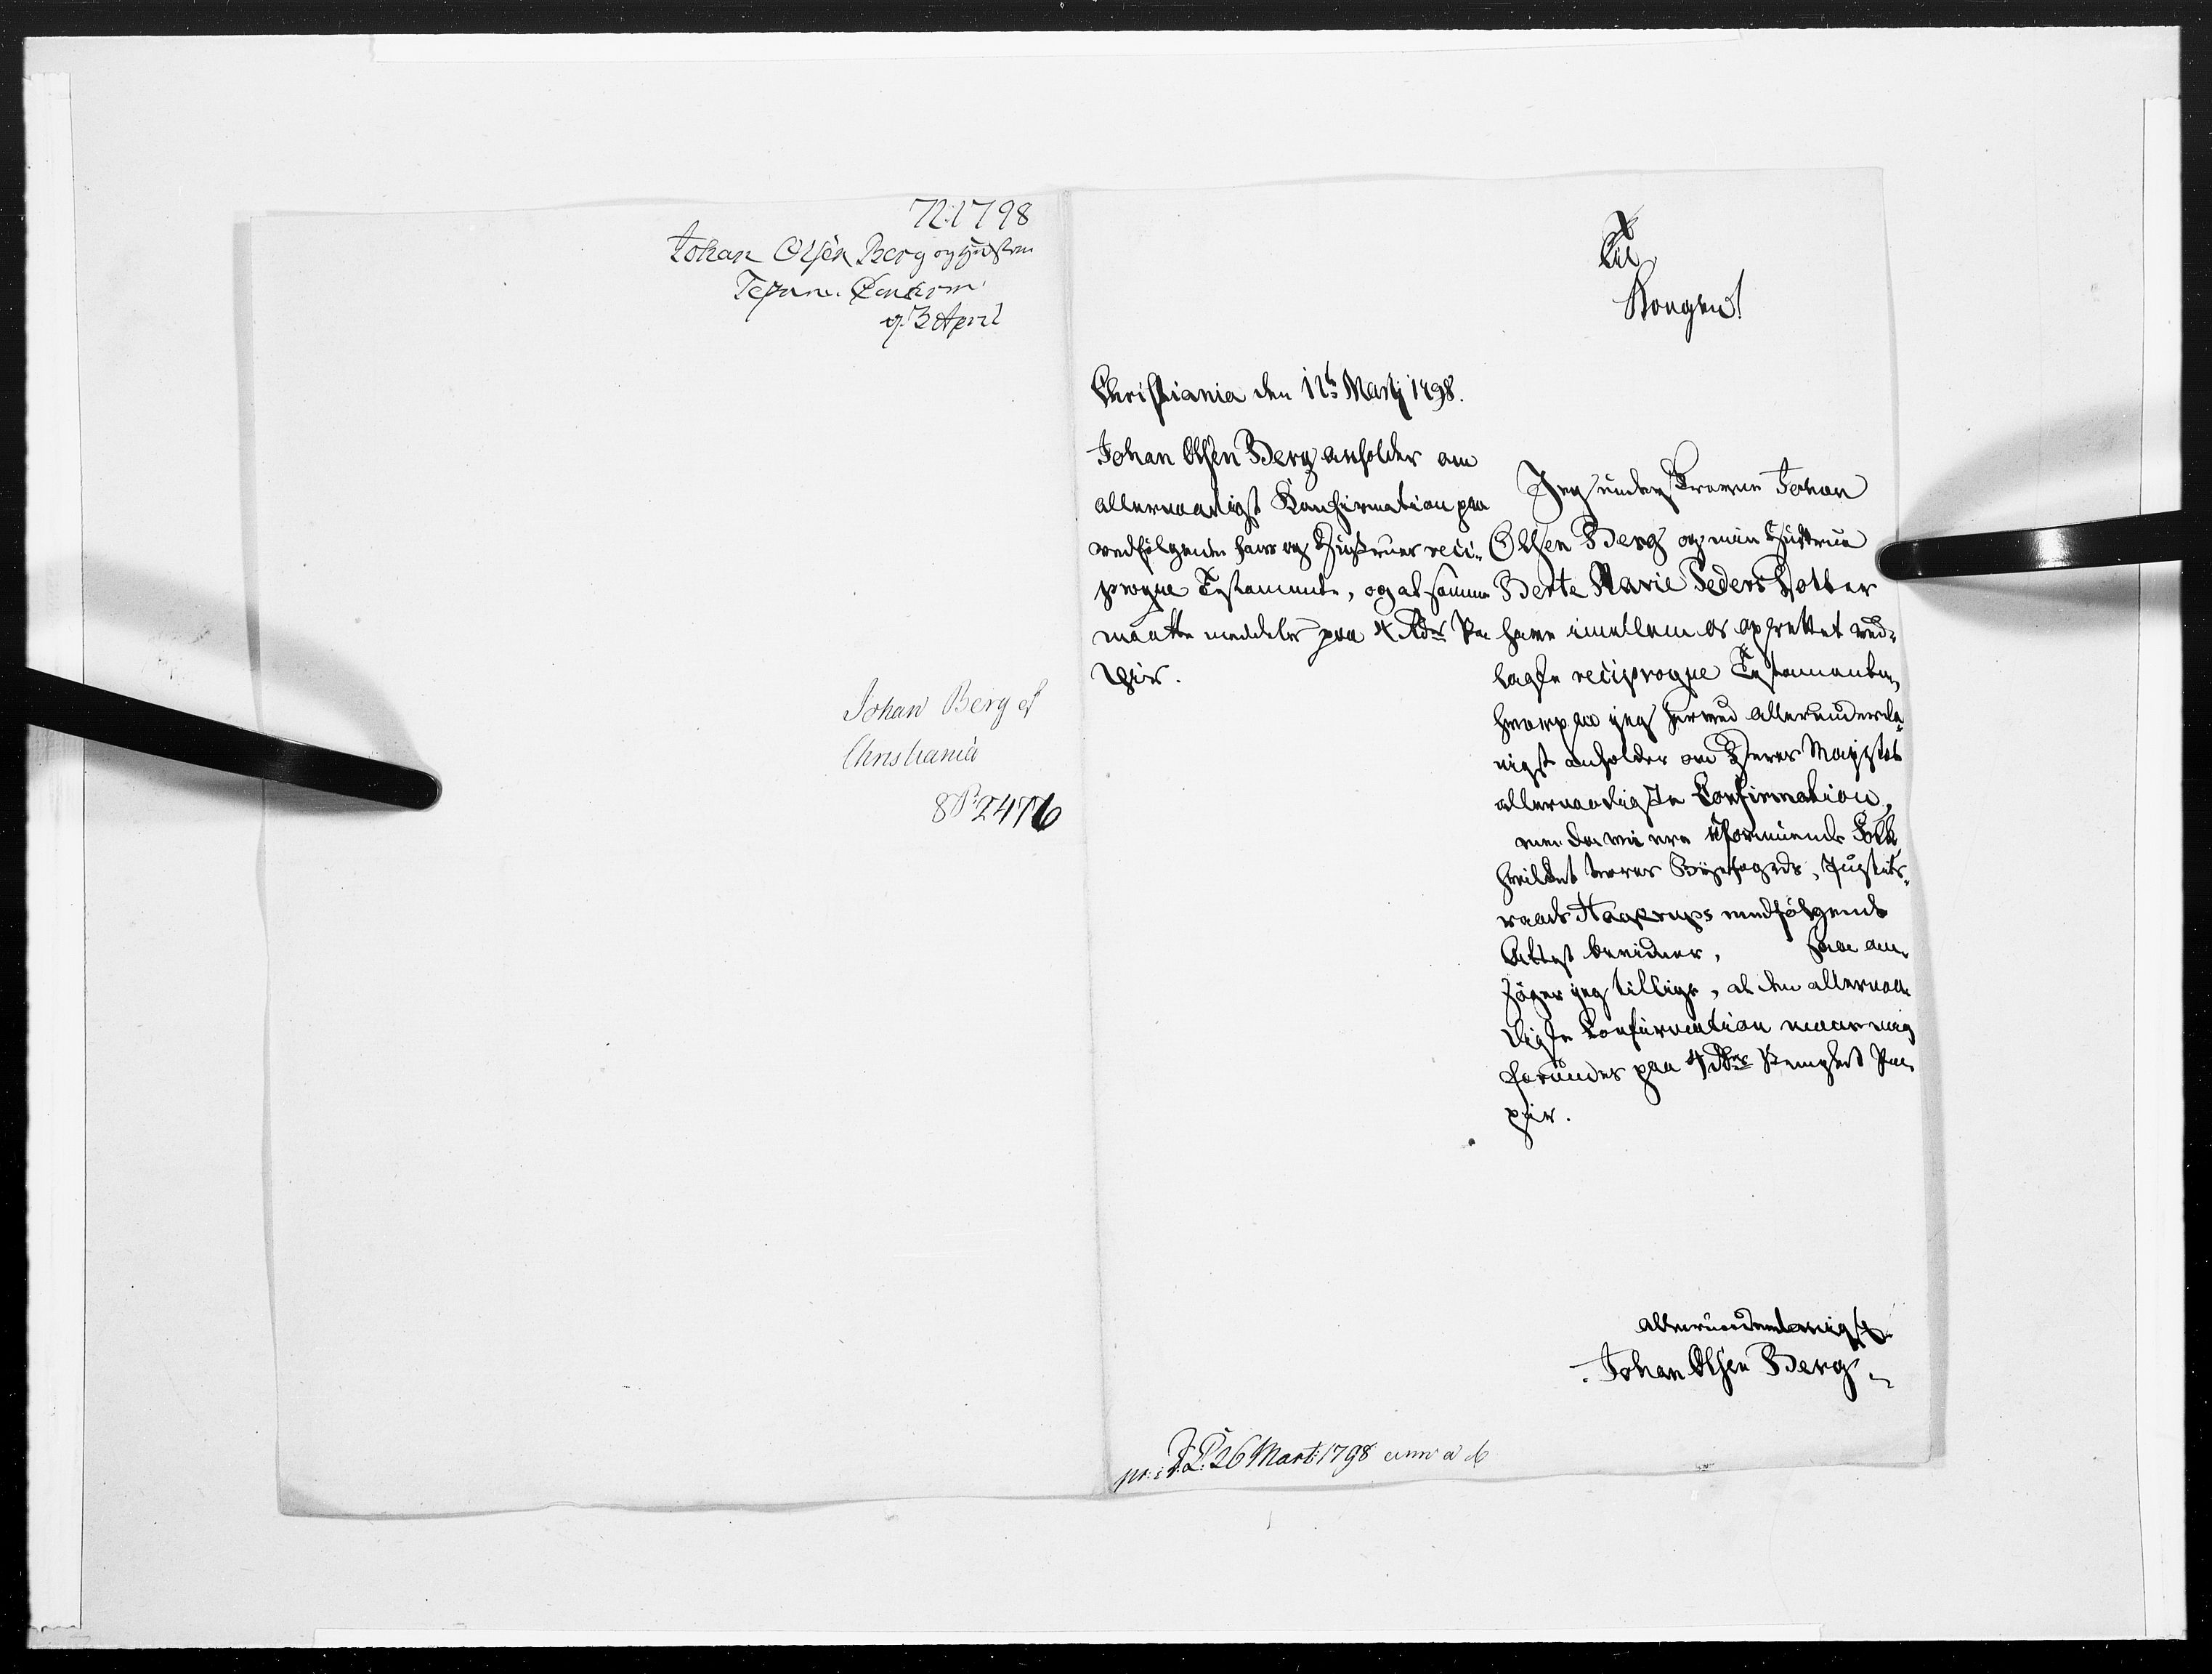 1798
Johan Olsen Berg og Hustrue
Testam. Conferm.
d. 3 April
Johan Berg af
Christiania
Til
Kongen!
Christiania den 11te Martj 1798.
Johan Olsen Berg anholder om
allernaadigst Konfirmation paa
vedfølgende hans og Hustrues reci-
proque Testamente, og at samme
maatte meddeles paa 4 Rdrs Pa
pir.
Jeg underskrevne Johan
Olsen Berg og min Hustrue
Berte Marie Peders Dotter
have imellem os oprettet ved-
lagte reciproque Testamente,
hvorpaa jeg herved allerunderda-
nigst anholder om Deres Mayestæts
allernaadigste Confirmation,
men da vi ere uformuende Folk,
hvilket vores Byefogeds, Justits-
raads medfølgende
Attest bevidner, saa an-
søger jeg tillige, at den allernaa-
digste Confirmation maae mig
forundes paa 4 Rdrs stemplet Pa-
pir.
allerunderdanigst
Johan Olsen Berg
pr: i D: C: 26 Mart: 1798